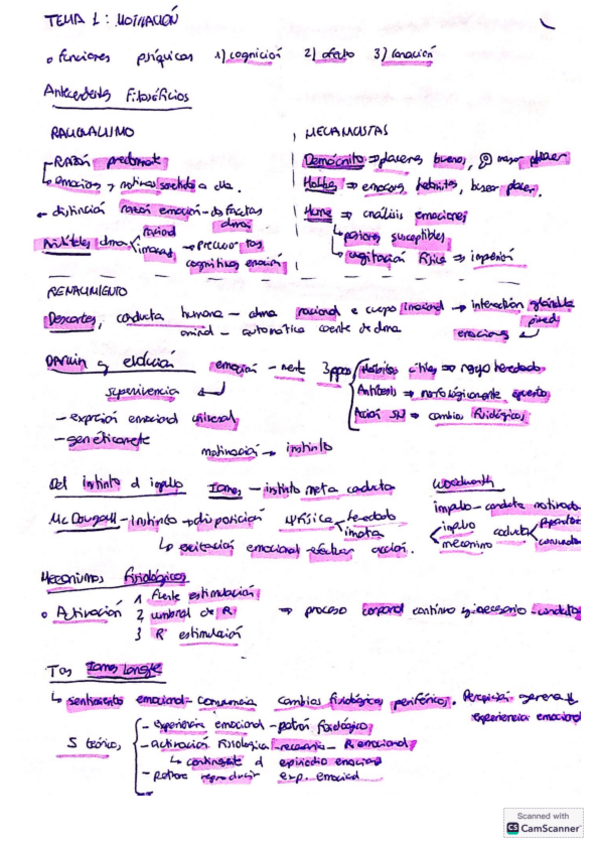 TEMA 1: MOTIVACIÓN
o funciones psíquicas 1) cognición 2) afecto 3) conación
Antecedentes Filosóficos
RACIONALISMO
- Razón predominante
emociones y motivos a ella.
← distinción razón emoción
Aristóteles alma racional
cognitivas emoción
MECANICISTAS
Demócrito ⇒ placeres buenos, mayor placer
Hobbes ⇒ emociones, buscar placer.
Hume ⇒ análisis emociones
pasiones susceptibles
agitación física ⇒
RENACIMIENTO
Descartes, conducta humana - alma racional e cuerpo irracional → interacción glándula
animal - automática carente de alma
emociones
Darwin y evolución emoción - mente 3 ppos
supervivencia
- expresión emocional universal
- genéticamente
Hábitos útiles ⇒ heredado
Antítesis ⇒ morfológicamente opuesto
Acción SN ⇒ cambios fisiológicos
motivación → instinto
Del instinto al impulso James - instinto meta conducta
Mc Dougall - Instinto → disposición heredado
innata
↳ excitación emocional - acción.
Woodworth
impulso - conducta motivada
impulso conducta
mecanismo
Mecanismos fisiológicos
o Activación 1 fuente estimulación
2 umbral de R
3 R estimulación
⇒ proceso corporal continuo y necesario - conducta
Tas James Lange
↳ sentimiento emocional - cambios fisiológicos periféricos. Percepción genera
experiencia emocional
5 teóricos
- experiencia emocional - patrón fisiológico
- activación fisiológica - necesaria - R emocional
↳ contingente al episodio emocional
- reproducir exp. emocional
Scanned with
CS CamScanner